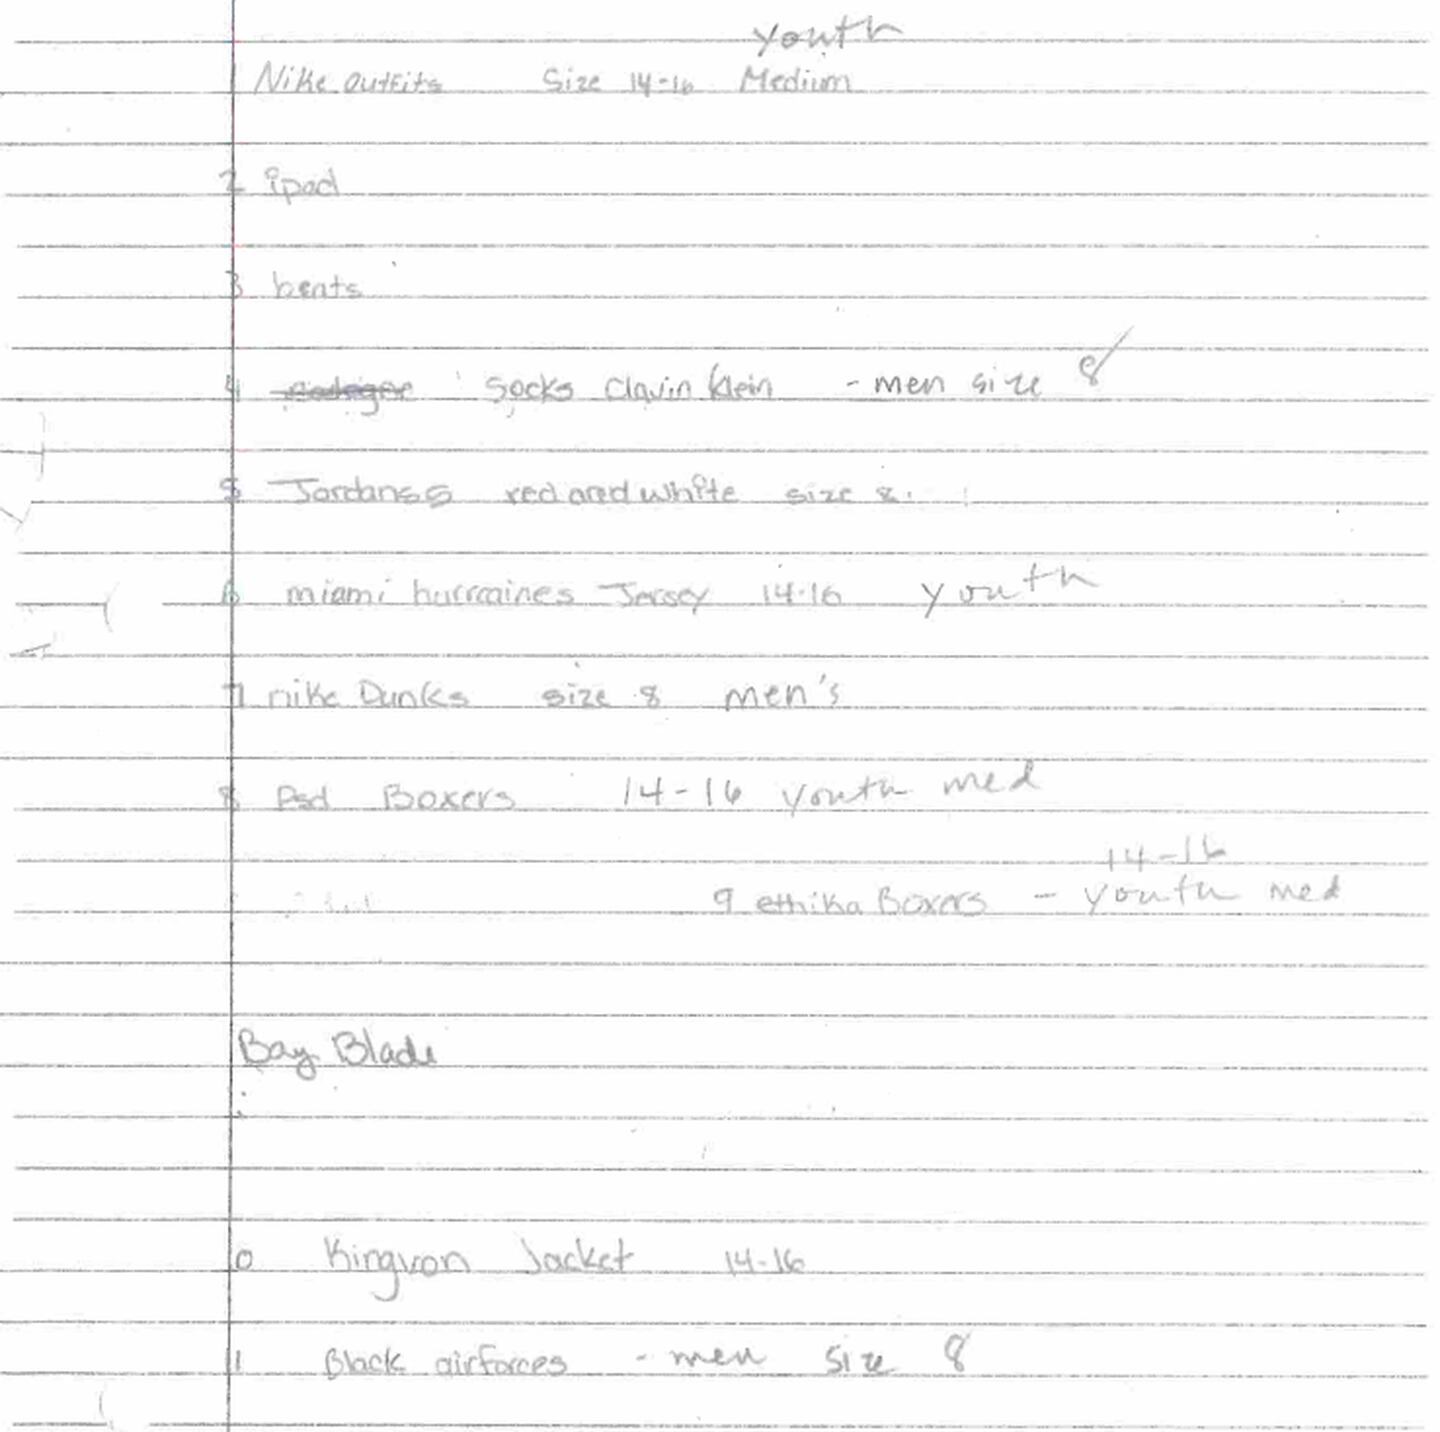 youth
1 Nike outfits Size 14-16 Medium
2 ipad
3 beats
4 Socks Clavin klein - men size 8
5 Jordanss red and white size 8.
6 miami hurrcaines Jersey 14-16 youth
7 nike Dunks size 8 men's
8 Psd Boxers 14-16 youth med
14-16
9 ethika Boxers - youth med
Bay Blade
0 Kingvon Jacket 14-16
11 Black airforces - men size 8